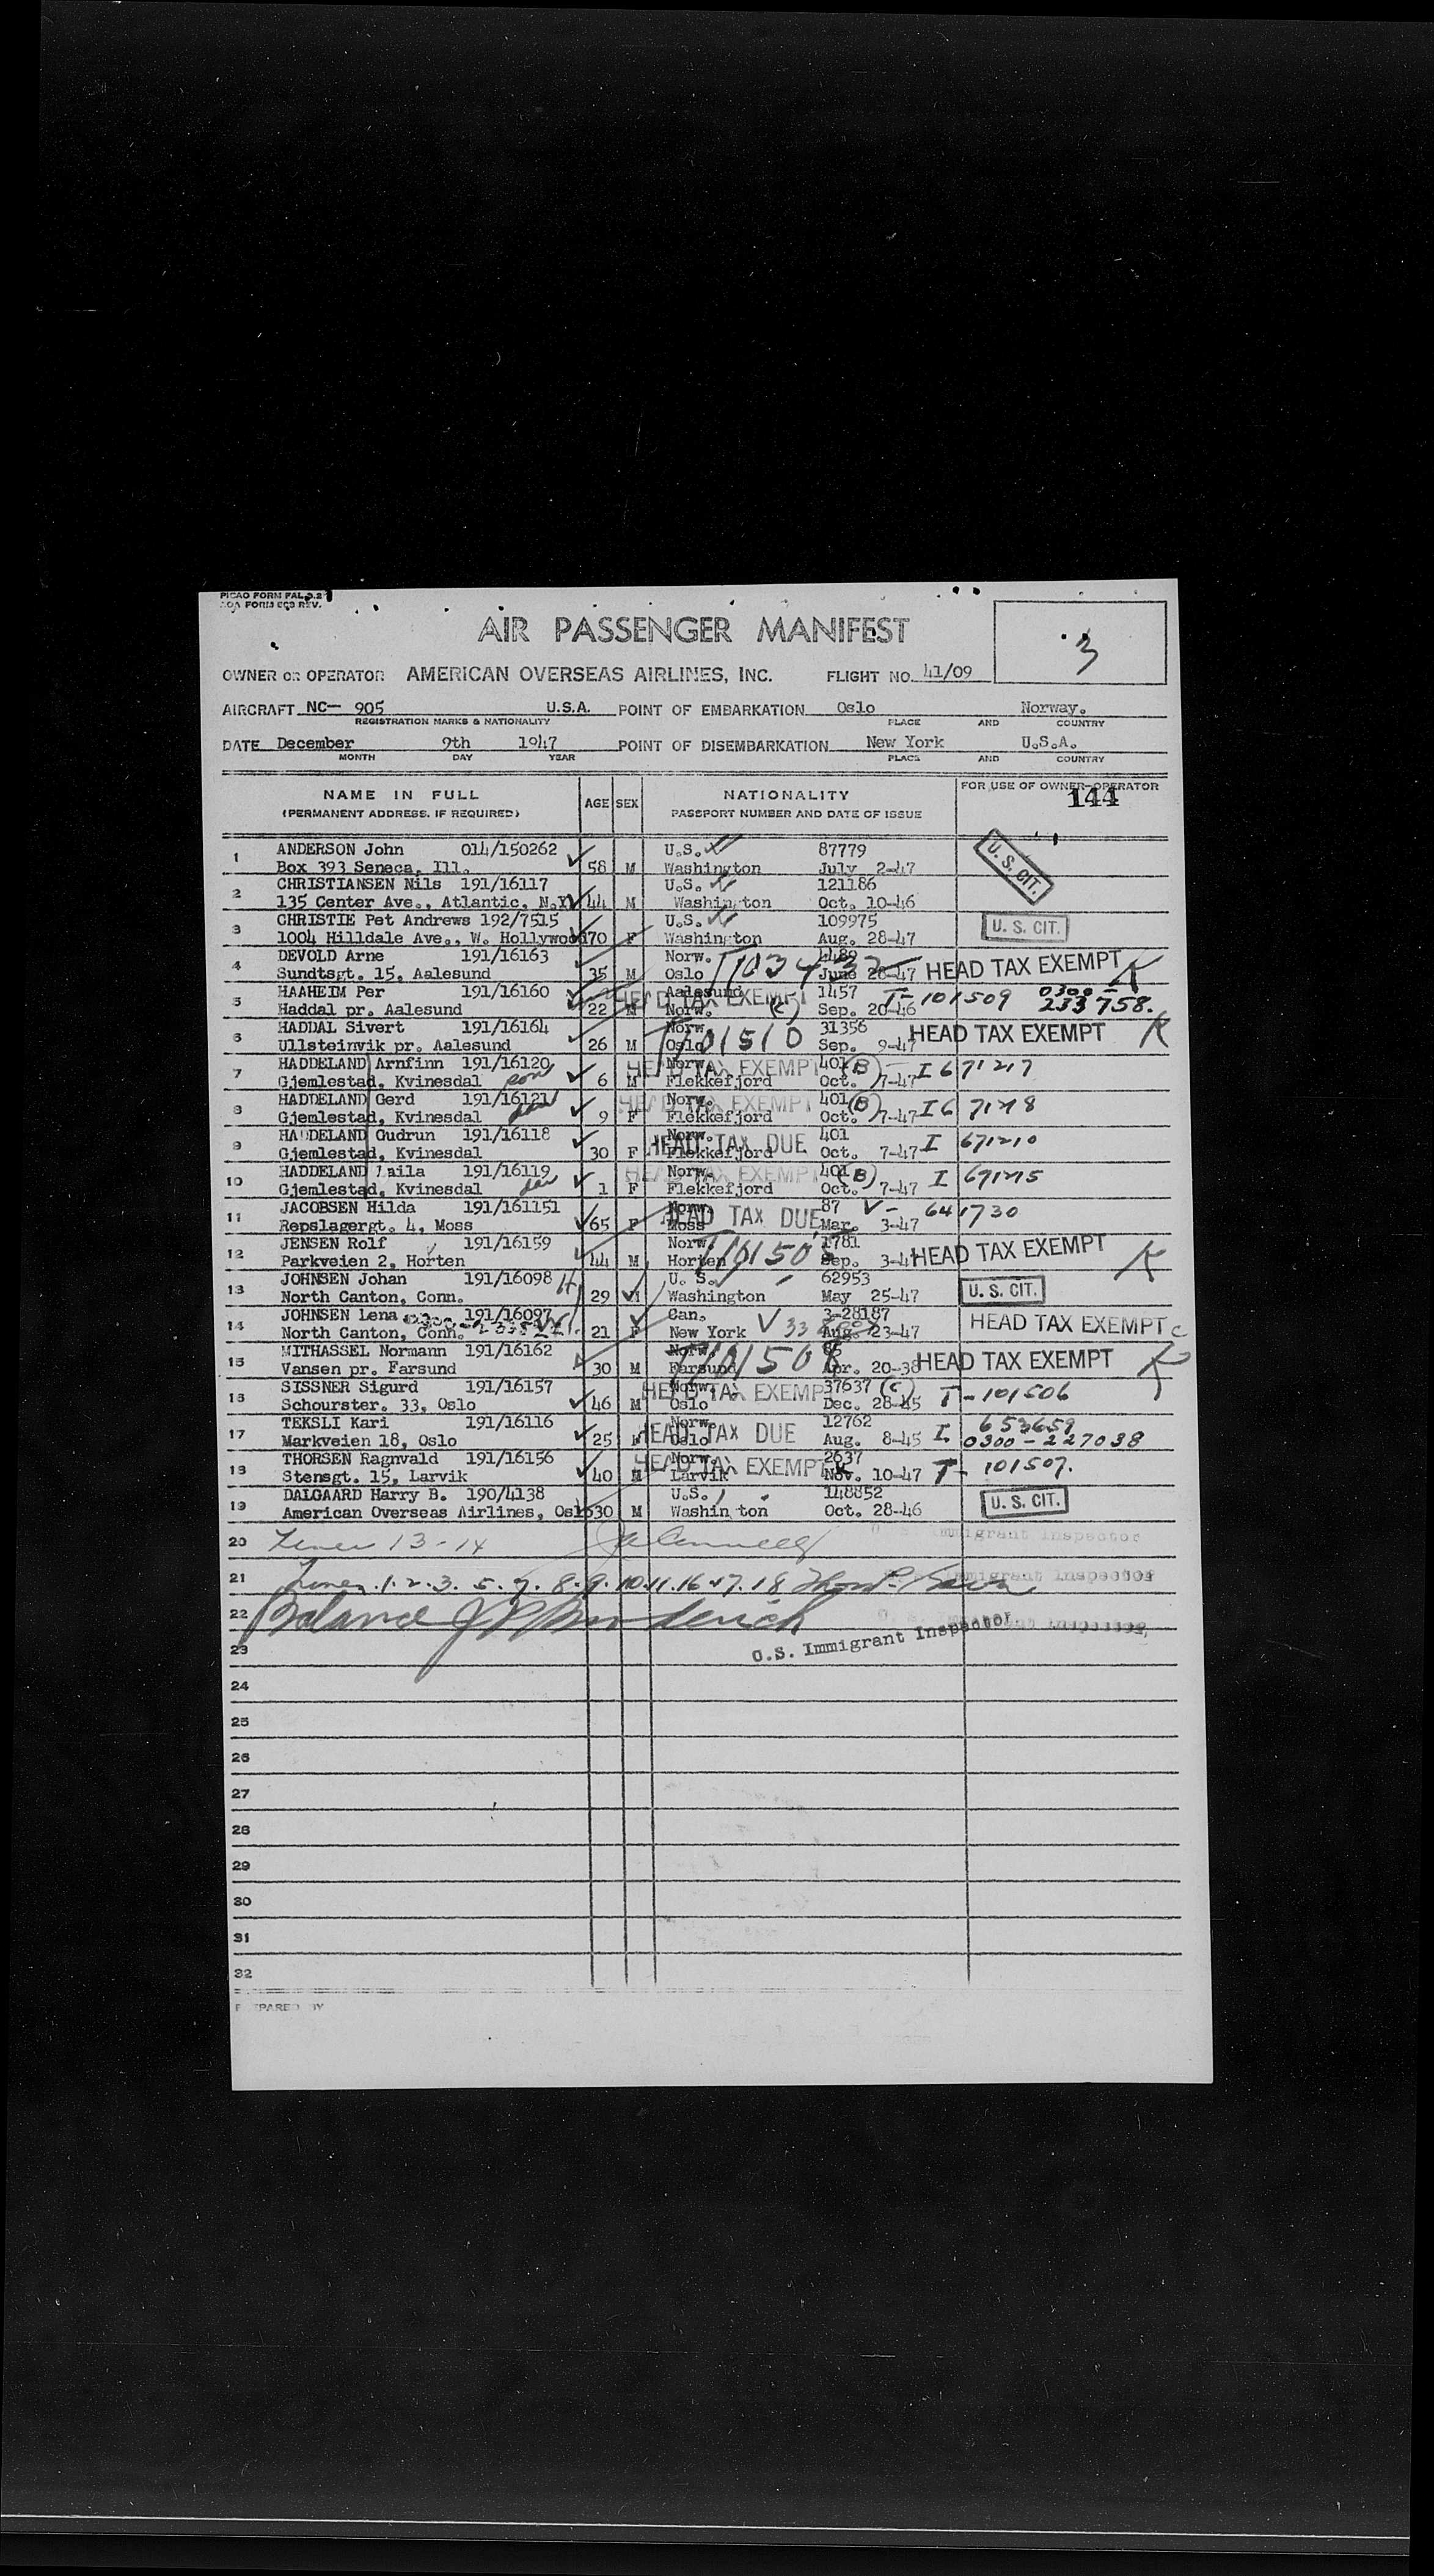 PICAO FORM FAL 9.2
AOA FORM REV.
AIR PASSENGER MANIFEST
3
OWNER OR OPERATOR AMERICAN OVERSEAS AIRLINES, INC. FLIGHT NO. 41/09
AIRCRAFT NC— 905 U.S.A. POINT OF EMBARKATION Oslo Norway.
REGISTRATION MARKS & NATIONALITY PLACE AND COUNTRY
DATE December 9th 1947 POINT OF DISEMBARKATION New York U.S.A.
MONTH DAY YEAR PLACE AND COUNTRY
NAME IN FULL AGE SEX NATIONALITY FOR USE OF OWNER-OPERATOR
(PERMANENT ADDRESS, IF REQUIRED) PASSPORT NUMBER AND DATE OF ISSUE 144
1 ANDERSON John 014/150262 U.S. 87779 U. S. CIT.
Box 393 Seneca, Ill. 58 M Washington July 2-47
2 CHRISTIANSEN Nils 191/16117 U.S. 121186
135 Center Ave., Atlantic, N.Y. 44 M Washington Oct. 10-46
3 CHRISTIE Pet Andrews 192/7515 U.S. 109975 U. S. CIT.
1004 Hilldale Ave., W. Hollywood 70 F Washington Aug. 28-47
4 DEVOLD Arne 191/16163 Norw. HEAD TAX EXEMPT
Sundtsgt. 15, Aalesund 35 M Oslo June 28-47
5 HAAHEIM Per 191/16160 HEAD TAX EXEMPT Aalesund 1457 T-101509 0300-
Haddal pr. Aalesund 22 M Norw. (C) Sep. 20-46 233758.
6 HADDAL Sivert 191/16164 Norw. 31356 HEAD TAX EXEMPT
Ullsteinvik pr. Aalesund 26 M Oslo T101510 Sep. 9-47
7 HADDELAND Arnfinn 191/16120 HEAD TAX EXEMPT Norw. 401 (B) I 671217
Gjemlestad, Kvinesdal son 6 M Flekkefjord Oct. 7-47
8 HADDELAND Gerd 191/16121 HEAD TAX EXEMPT Norw. 401 (B)
Gjemlestad, Kvinesdal 9 F Flekkefjord Oct. 7-47 I 6
9 HADDELAND Gudrun 191/16118 HEAD TAX DUE Norw. 401 I 671210
Gjemlestad, Kvinesdal 30 F Flekkefjord Oct. 7-47
10 HADDELAND Laila 191/16119 HEAD TAX EXEMPT Norw. 401 (B) I
Gjemlestad, Kvinesdal 1 F Flekkefjord Oct. 7-47
11 JACOBSEN Hilda 191/161151 HEAD TAX DUE Norw. 87 V- 641730
Repslagergt. 4, Moss 65 F Moss Mar. 3-47
12 JENSEN Rolf 191/16159 Norw. 1781 HEAD TAX EXEMPT
Parkveien 2, Horten 44 M Horten Sep.
13 JOHNSEN Johan 191/16098 U. S. 62953 U. S. CIT.
North Canton, Conn. 29 Washington May 25-47
14 JOHNSEN Lena 191/16097 Can. 3-28187 HEAD TAX EXEMPT
North Canton, Conn. 21 F New York Aug. 23-47
15 MITHASSEL Normann 191/16162 Norw. HEAD TAX EXEMPT
Vansen pr. Farsund 30 M Farsund Apr. 20-38
16 SISSNER Sigurd 191/16157 HEAD TAX EXEMPT Norw. 37637 (C) T-101506
Schourster. 33, Oslo 46 M Oslo Dec. 28-45
17 TEKSLI Kari 191/16116 HEAD TAX DUE Norw. 12762 I. 653659
Markveien 18, Oslo 25 F Oslo Aug. 8-45 0300-227038
18 THORSEN Ragnvald 191/16156 HEAD TAX EXEMPT Norw. 2637 T- 101507.
Stensgt. 15, Larvik 40 M Larvik Nov. 10-47
19 DALGAARD Harry B. 190/4138 U.S. 148852 U. S. CIT.
American Overseas Airlines, Oslo 30 M Washington Oct. 28-46
20 Lines 13-14 Immigrant Inspector
21 Lines 1. 2. 3. 5. 7. 8. 9. 10. 11. 16. 17. 18 Immigrant Inspector
22 Balance
23 U.S. Immigrant Inspector
24
25
26
27
28
29
30
31
32
PREPARED BY